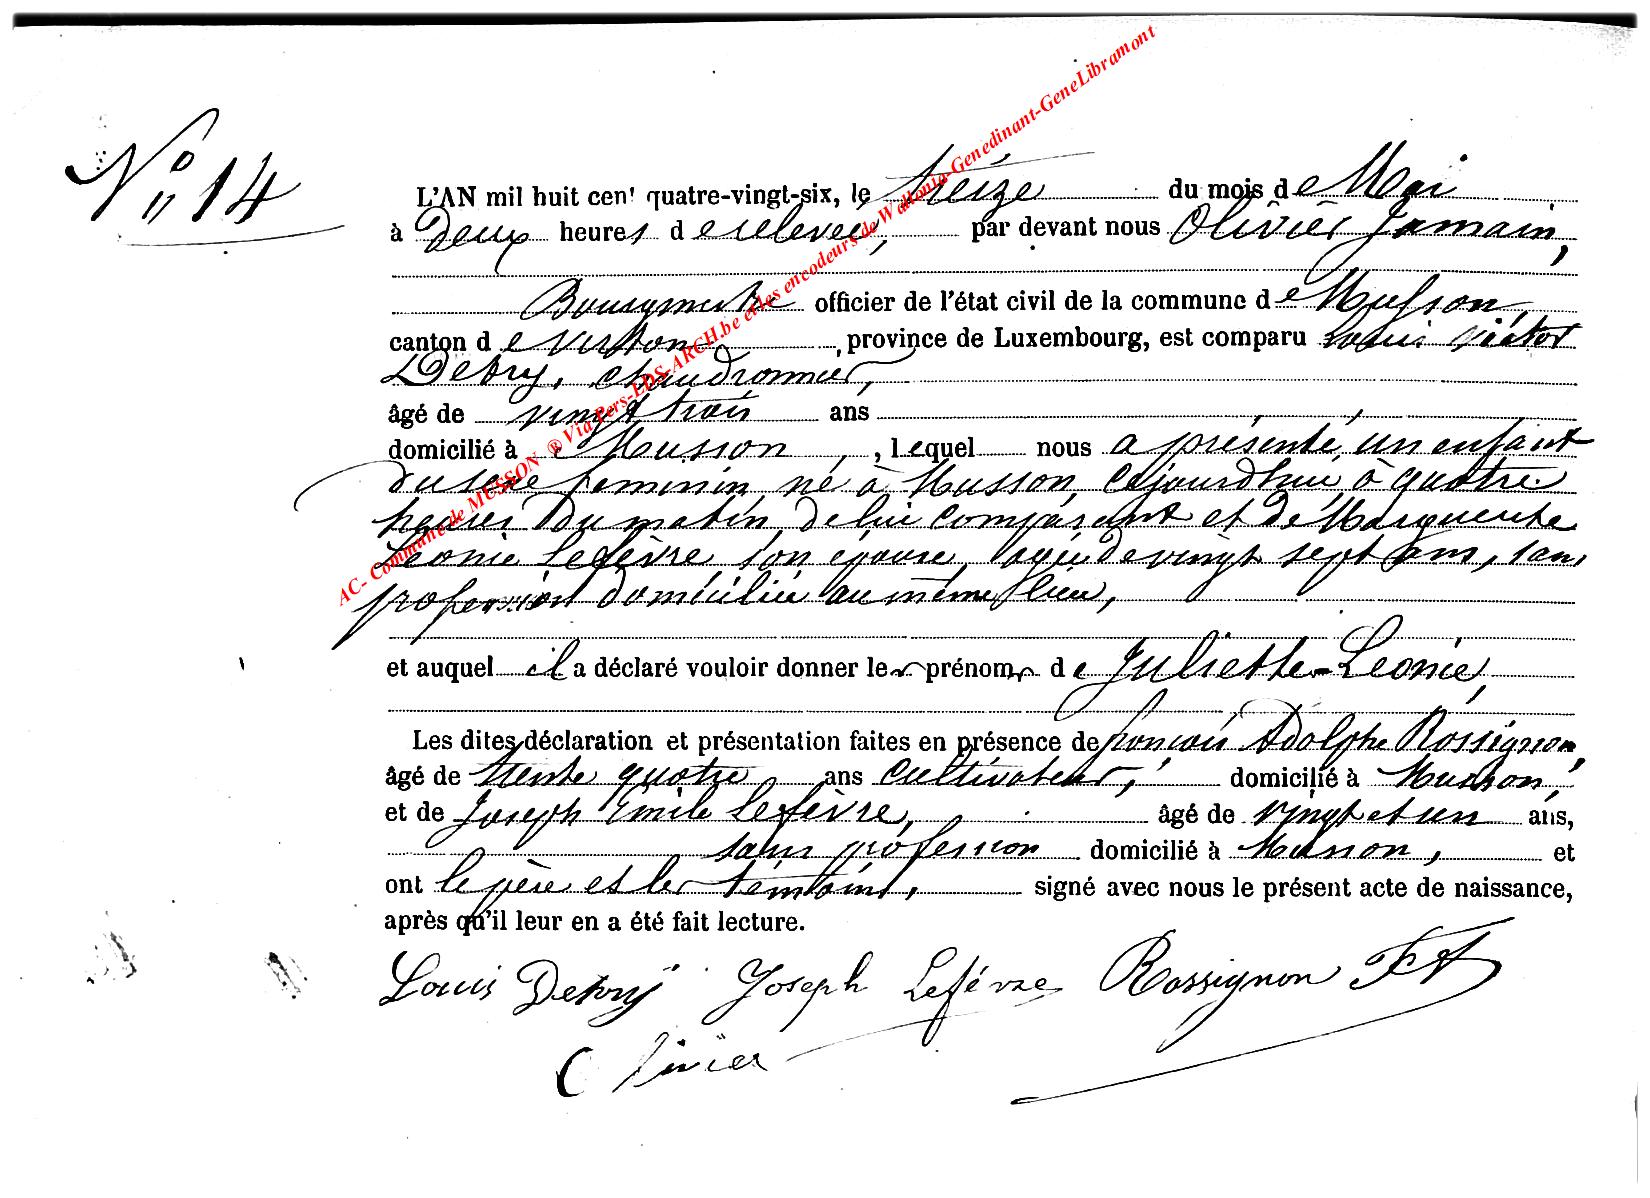 N° 14
L'AN mil huit cent quatre-vingt-six, le treize du mois de Mai
à Deux heures de relevée, par devant nous Olivier Jamain,
Bourgmestre officier de l'état civil de la commune de Musson,
canton de Virton, province de Luxembourg, est comparu Louis Victor
Debry, chaudronnier,
âgé de vingt trois ans
domicilié à Musson, lequel nous a présenté un enfant
du sexe feminin, né à Musson, cejourd'hui à quatre
heures du matin, de lui comparant et de Marguerite
Leonie Lefèvre son épouse, agée de vingt sept ans, sans
profession domiciliée au même lieu,
et auquel il a déclaré vouloir donner les prénoms de Juliette-Leonie,
Les dites déclaration et présentation faites en présence de François Adolphe Rossignon,
âgé de trente quatre ans cultivateur, domicilié à Musson,
et de Joseph Emile Lefèvre, âgé de vingt et un ans,
sans profession domicilié à Musson, et
ont le père et les témoins, signé avec nous le présent acte de naissance,
après qu'il leur en a été fait lecture.
Louis Debry Joseph Lefévre Rossignon FA
Olivier
AC- Commune de MUSSON ® Via Pers-LDS-ARCH.be et les encodeurs de Wallonia-Genedinant-GeneLibramont